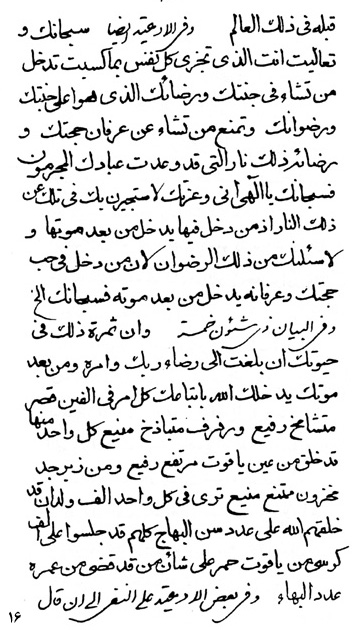 قبله فی ذلك العالم وفی الادعیة ایضا سبحانك و
تعالیت انت الذی تجزی كل نفس بما كسبت تدخل
من تشاء فی جنتك ورضائك الذی هو اعلی جنتك
ورضوانك وتمنع من تشاء عن عرفان حجتك و
رضائه ذلك نار التی قد وعدت عبادك المجرمون
فسبحانك یا الهی انی وعزتك لاستجیرن بك فی تلك عن
ذلك النار اذ من دخل فیها یدخل من بعد موتها و
لاسئلنك من ذلك الرضوان لان من دخل فی حب
حجتك وعرفانه یدخل من بعد موته فسبحانك الخ
وفی البیان فی شئون خمسة وان ثمرة ذلك فی
حیوتك ان بلغت الی رضاء ربك وامره ومن بعد
موتك یدخلك الله باتباعك كل امر فی الفین قصر
متشامخ رفیع ورفرف متباذخ منیع كل واحد منها
قد خلق من عین یاقوت مرتفع رفیع ومن زبرجد
مخزون ممتنع منیع تری فی كل واحد الف ولدان قد
خلقتهم الله علی عدد سن البهاج كلهم قد جلسوا علی الف
كرسی من یاقوت حمر علی شأن من قد قضی من عمره
عدد البهاء وفی بعض الادعیة علی النفی الی ان قال
۱۶